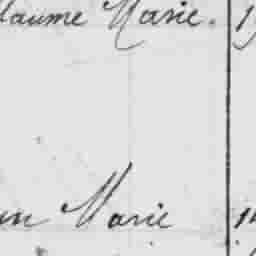 laume Marie. 19
un Marie 19